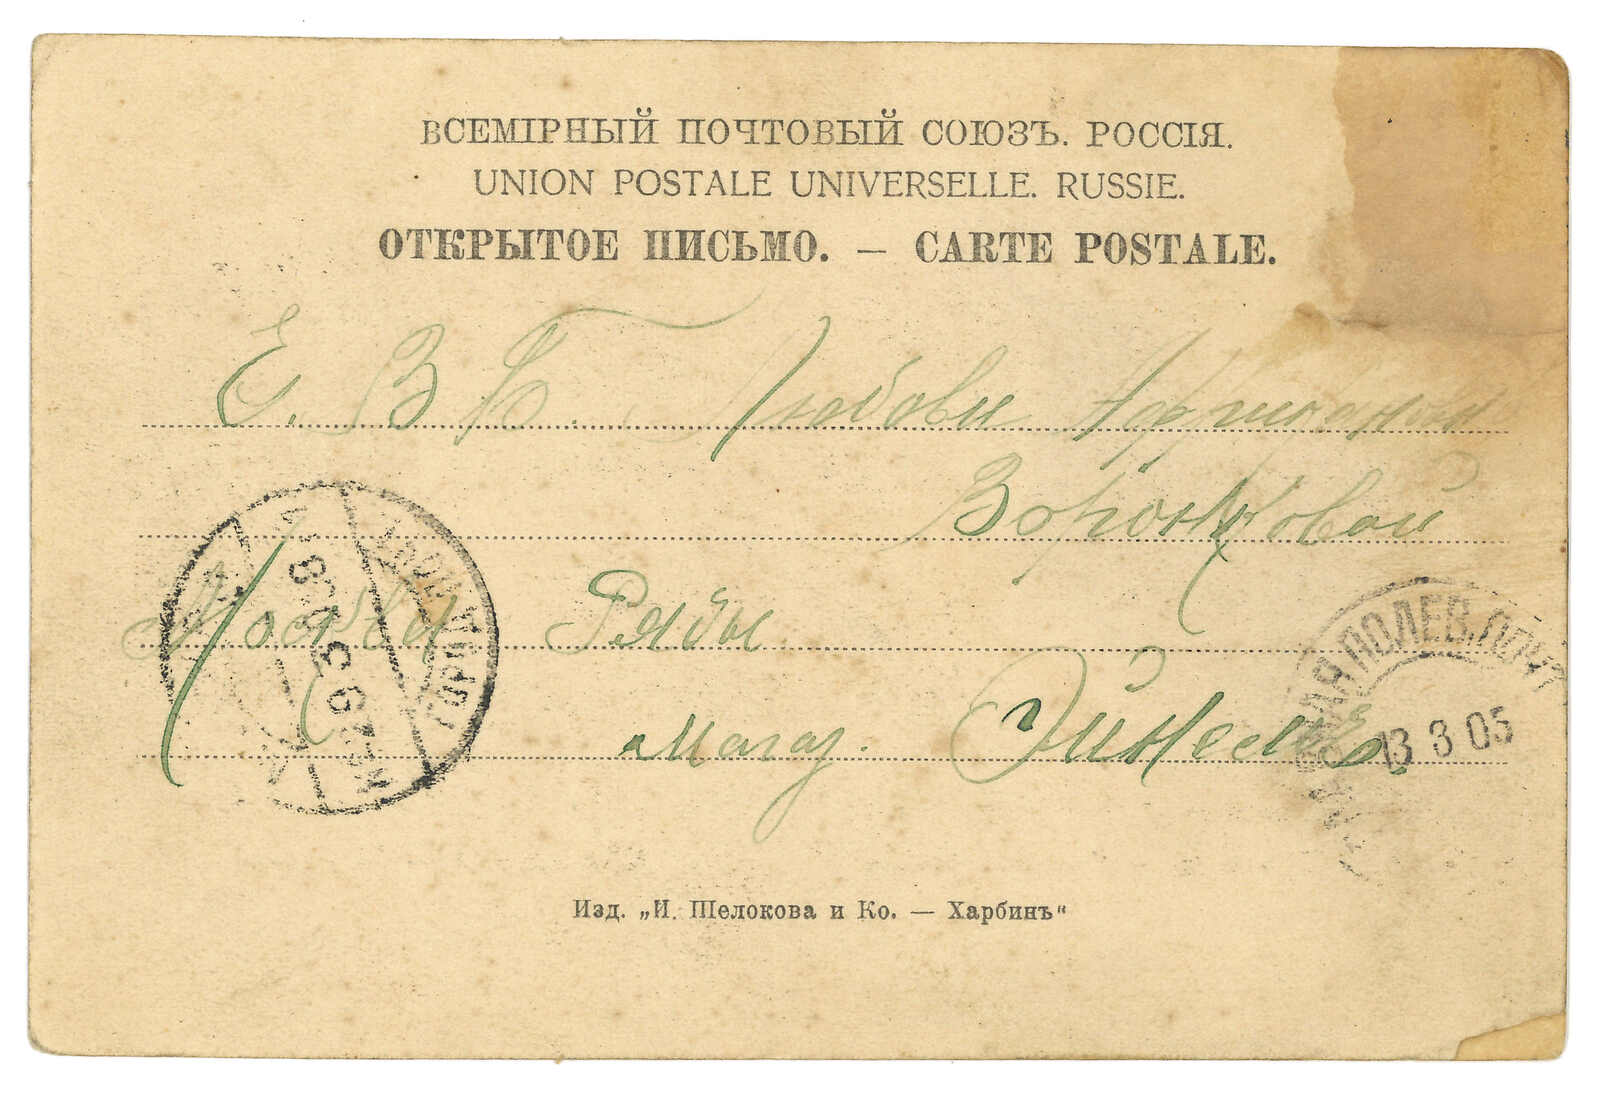 ВСЕМІРНЫЙ ПОЧТОВЫЙ СОЮЗЪ. РОССІЯ.
UNION POSTALE UNIVERSELLE. RUSSIE.
ОТКРЫТОЕ ПИСЬМО. — CARTE POSTALE.
Е. В. Б. Любови
Воронковой
Москва Ряды
магаз. Эйнемъ.
ПОЛЕВ. ПОЧТ
13 3 05
Изд. „И. Шелокова и Ко. — Харбинъ"